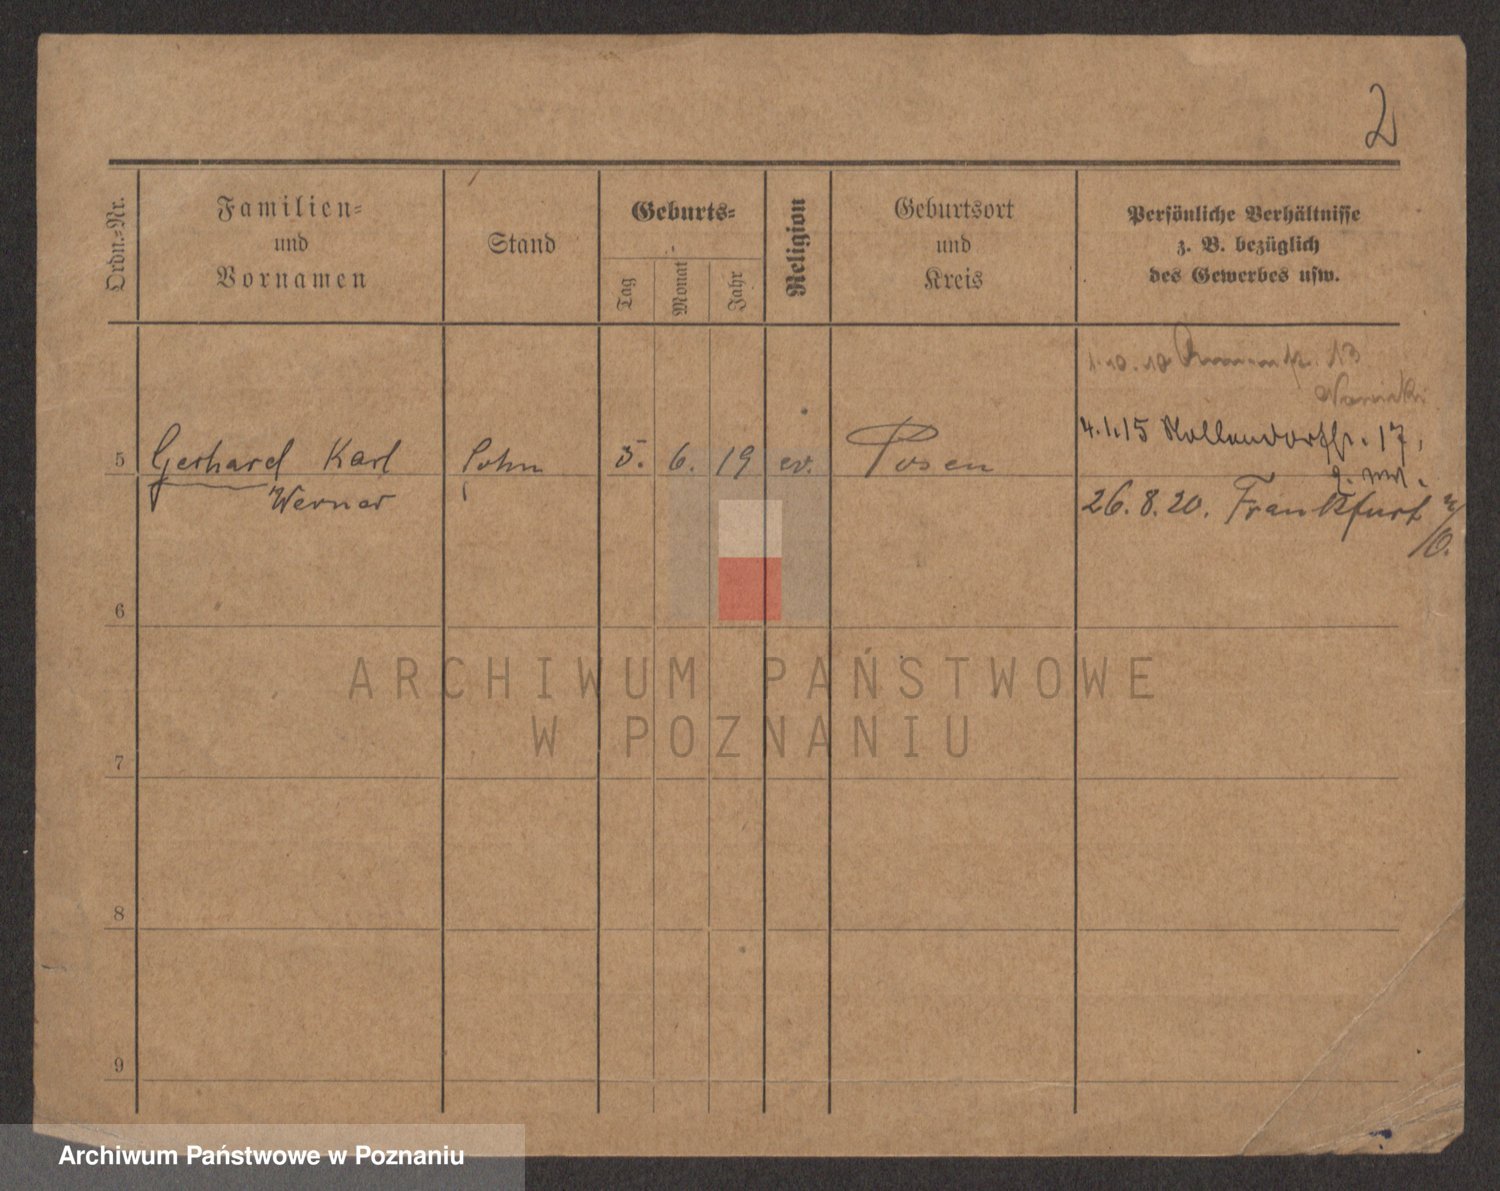 2
Ordn.=Nr.
Familien=
und
Vornamen
Stand
Geburts=
Tag
Monat
Jahr
Religion
Geburtsort
und
Kreis
Persönliche Verhältnisse
z. B. bezüglich
des Gewerbes usw.
13
4.1.15 Kollendorfstr. 17,
5 Gerhard Karl Sohn 5. 6. 19 ev. Posen
Werner
26.8.20. Frankfurt a/O.
6
7
8
9
ARCHIWUM PAŃSTWOWE
W POZNANIU
Archiwum Państwowe w Poznaniu